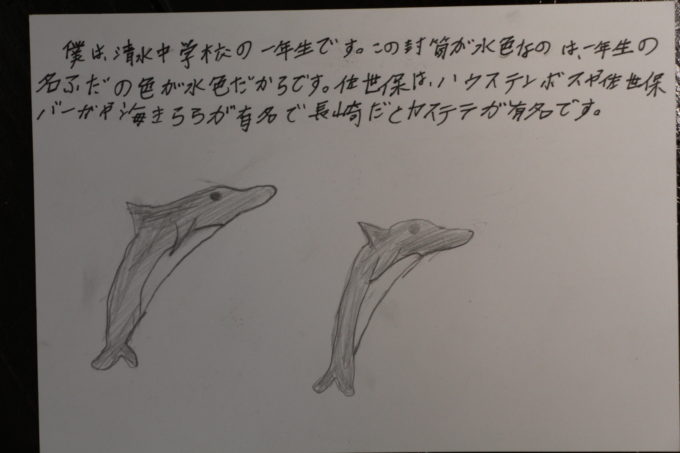 僕は、清水中学校の一年生です。この封筒が水色なのは、一年生の
名ふだの色が水色だからです。佐世保は、ハウステンボスや佐世保
バーガーや海きららが有名で長崎だとカステラが有名です。